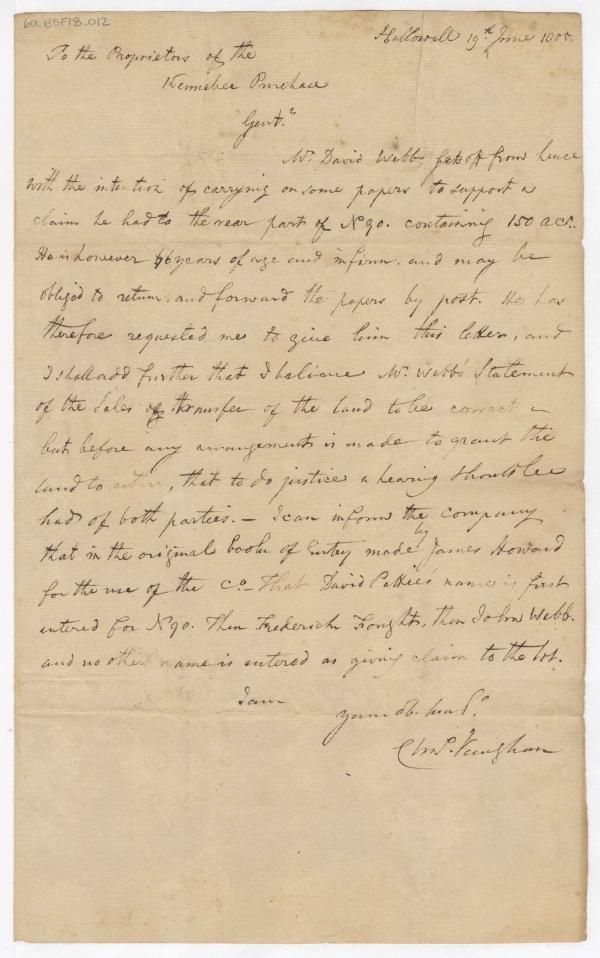 60.BSF18.012
Hallowell 19th June 1805
To the Proprietors of the
Kennebec Purchase
Gent.s
Mr. David Webb sets off from hence
with the intention of carrying on some papers to support a
claim he had to the rear part of No 90. containing 150 acs.
He is however 76 years of age and infirm. and may be
obliged to return, and forward the papers by post. He has
therefore requested me to give him this letter, and
I shall add further that I believe Mr. Webb's Statement
of the Sales & transfer of the land to be correct -
but before any arrangements is made to grant the
land to either, that to do justice a hearing should be
had of both parties. - I can inform the company
that in the original book of Entry made by James Howard
for the use of the Co. That David Pattee's name is first
entered for No 90. Then Frederick Fought, then John Webb.
and no other name is entered as giving claim to the lot.
I am
your ob. hum S.
Chas. Vaughan